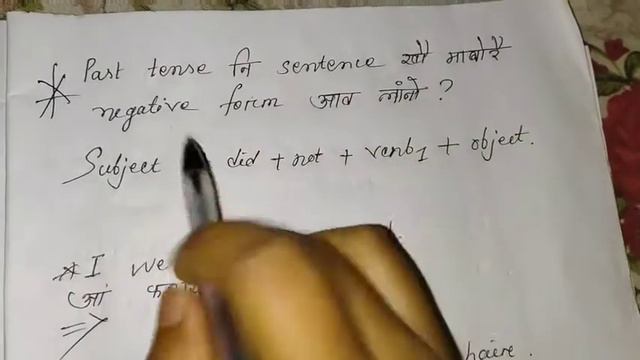 * Past tense नि sentence खौ माबोरै
negative form आव लांनो ?
Subject did + not + verb1 + object.
* I we
आं
=>
haire.